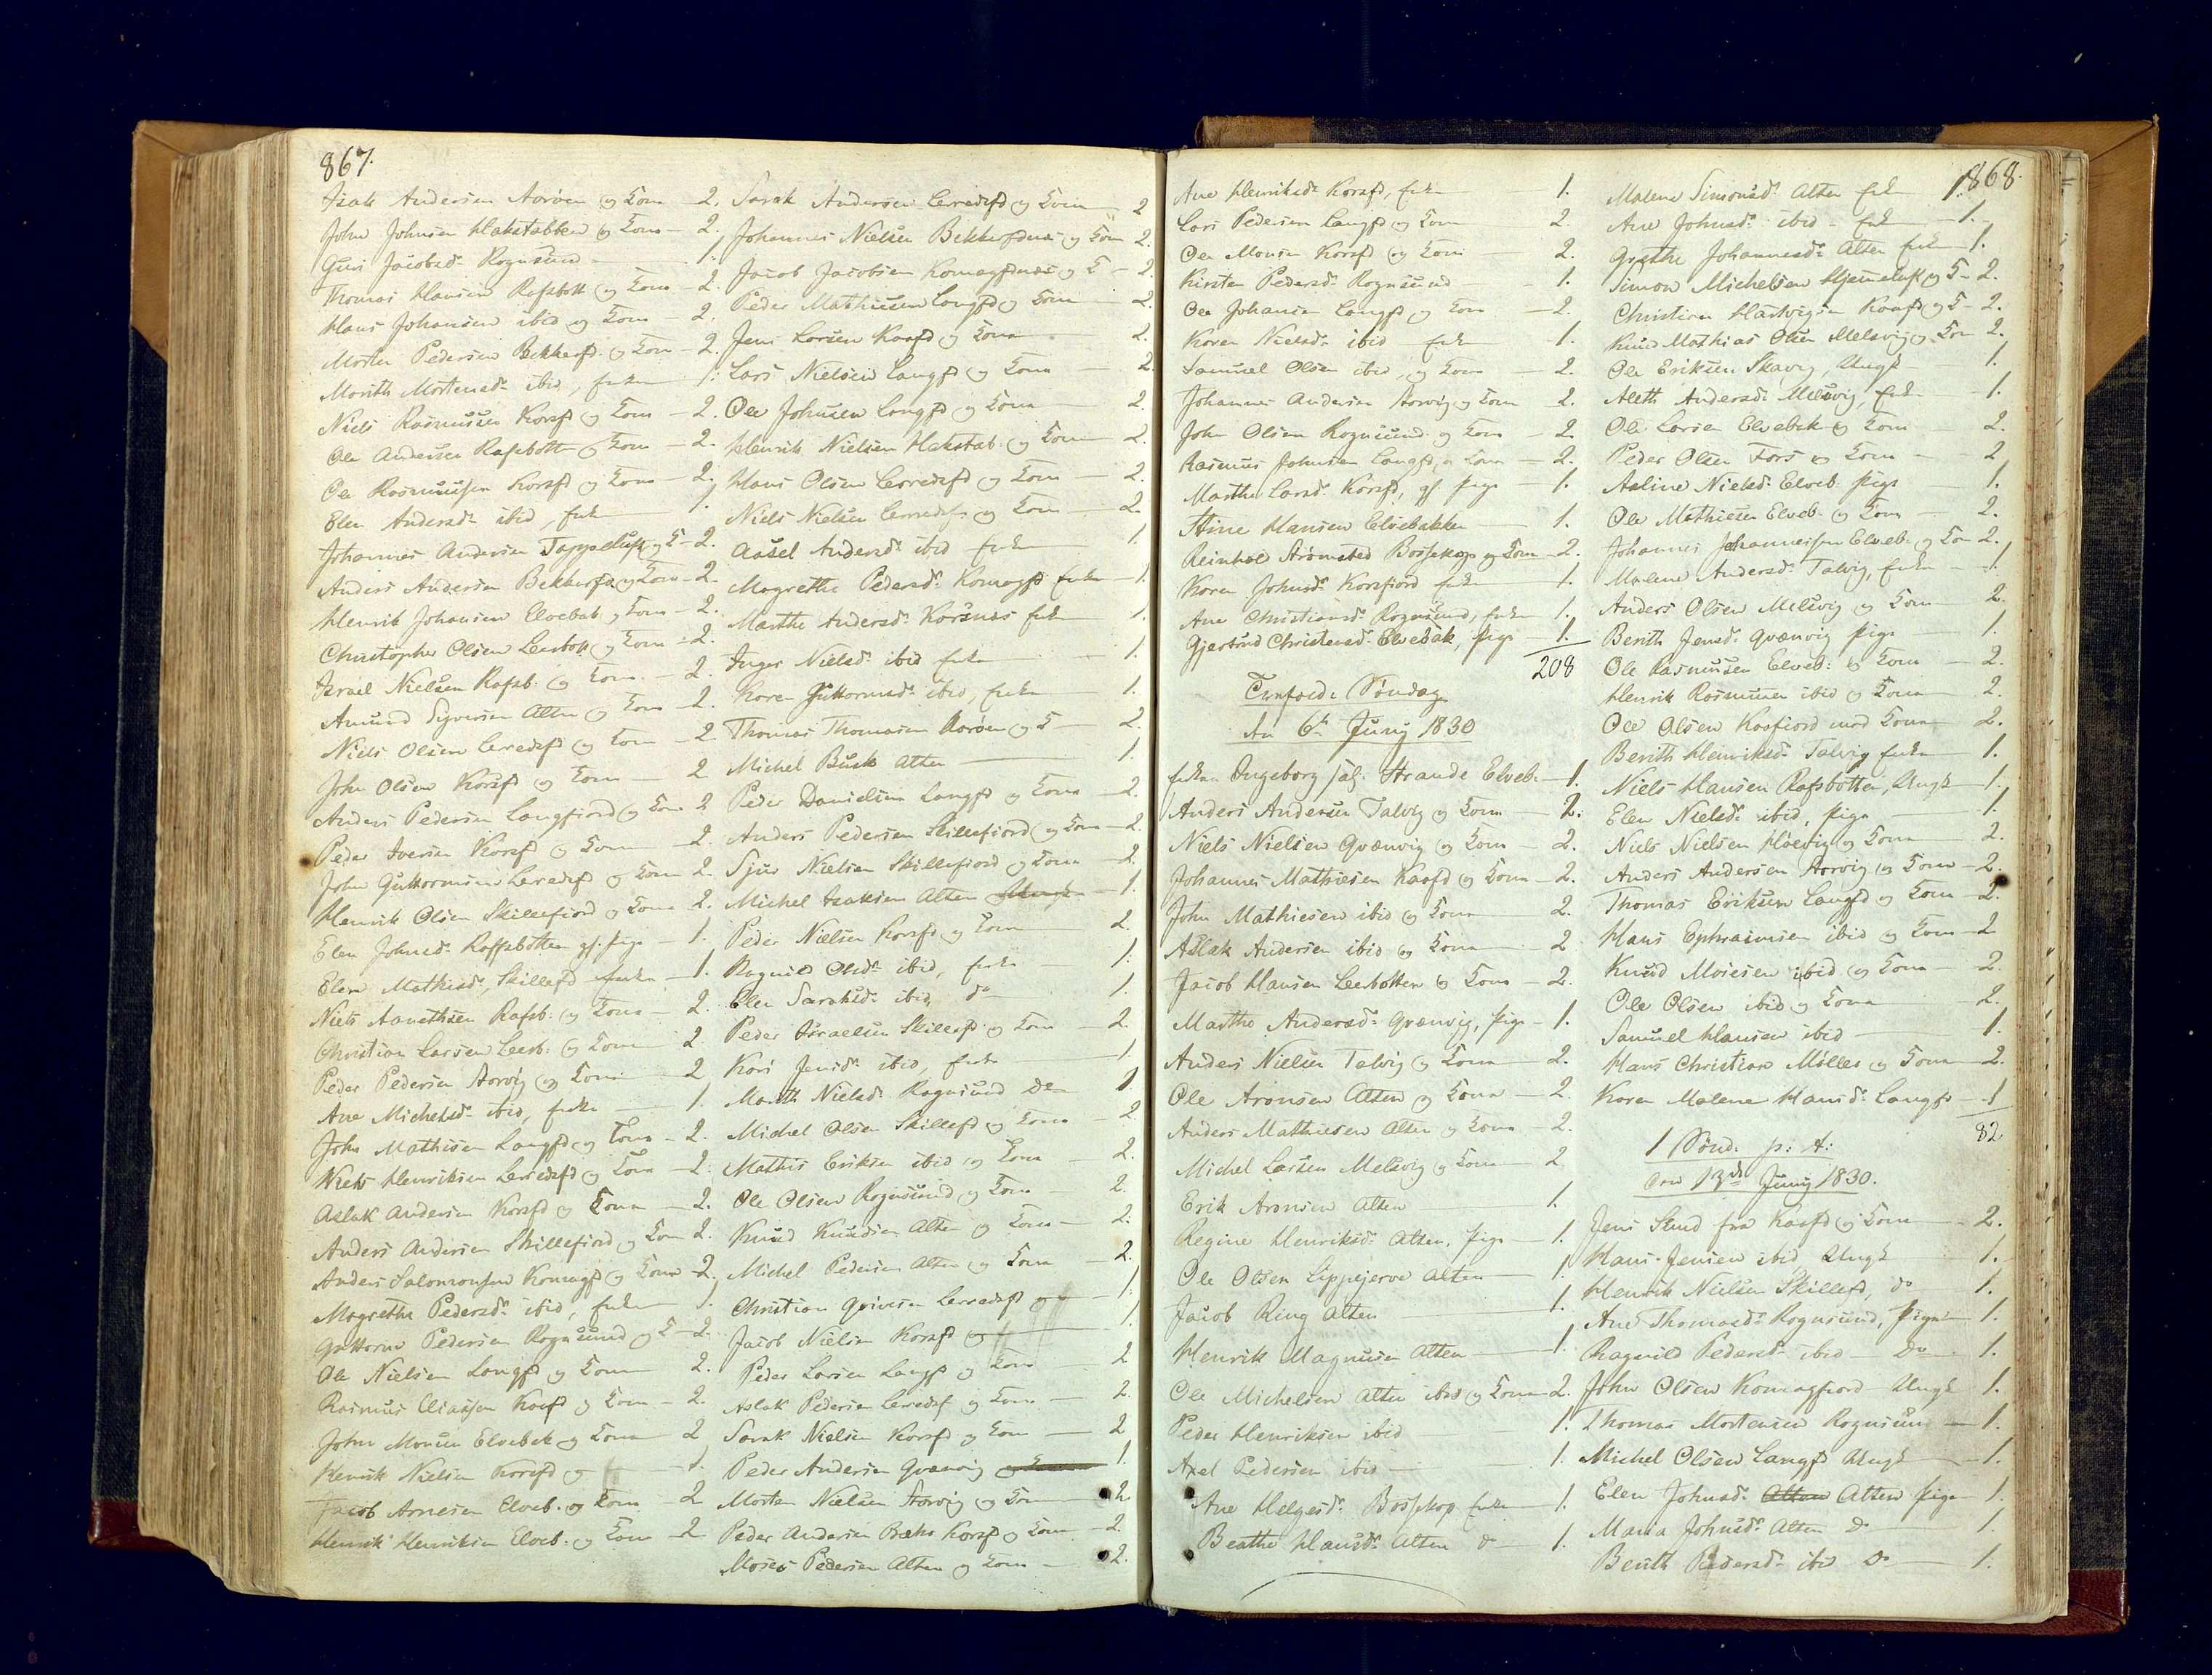 867.
Isak Andersen Aarøen og Kone - 2.
John Johnsen Hakstabben og Kone - 2.
Guri Jacobsdr. Rognsund - 1.
Thomas Hansen Rafsbott og Kone - 2.
Hans Johansen ibid og Kone - 2.
Morten Pedersen Bekkerfd. og Kone - 2.
Marith Mortensdr. ibid, enke 1.
Niels Rasmussen Korsfd og Kone - 2.
Ole Andersen Rafsbotten og Kone - 2.
Ole Rasmussen Korsfd og Kone - 2.
Elen Andersdr. ibid, enke 1.
Johannes Andersen Tappeluft og K - 2.
Anders Andersen Bekkerfd og Kone - 2.
Henrik Johansen Elvebak. og Kone - 2.
Christopher Olsen Leerbott og Kone - 2.
Israel Nielsen Rafsb. og Kone - 2.
Amund Syversen Alten og Kone - 2.
Niels Olsen Lerredsfd og Kone - 2
John Olsen Korsfd og Kone - 2
Anders Pedersen Langfiord og Kone 2
Peder Iversen Korsfd og Kone - 2.
John Guttormsen Leredsfd og Kone 2.
Henrik Olsen Skillefiord og Kone 2.
Elen Johnsdr. Raffsbotten gf. pige - 1.
Elen Mathisdr, Skillefd enke - 1.
Niels Aanethsen Rafsb. og Kone - 2.
Christian Larsen Leerb. og Kone 2.
Peder Pedersen Storvig og Kone 2
Ane Michelsdr. ibid, enke 1.
John Mathisen Langfd og Kone - 2.
Niels Henriksen Lerredsfd og Kone - 2.
Aslak Andersen Korsfd og Kone 2.
Anders Andersen Skillefiord og Kone 2.
Anders Salomonsen Komagfd og Kone - 2.
Magrethe Pedersdr. ibid, enke 1.
Guttorm Pedersen Rognsund og K - 2.
Ole Nielsen Langfd og Kone 2.
Rasmus Eliassen Kaafd og Kone - 2.
John Monsen Elvebak og Kone 2
Henrik Nielsen Korsfd og - 1.
Jacob Arnesen Elveb. og Kone 2
Henrik Henriksen Elveb. og Kone - 2
Sarak Andersen Lerredsfd og Kone - 2
Johannes Nielsen Bekkerfdnæs og Kone 2.
Jacob Jacobsen Komagfdnæs og K - 2.
Peder Mathiesen Langfd og Kone 2.
Jens Larsen Kaafd og Kone 2.
Lars Nielsen Langfd og Kone 2.
Ole Johnsen Langfd og Kone 2.
Henrik Nielsen Hakstab. og Kone 2.
Hans Olsen Lerredsfd og Kone - 2.
Niels Nielsen Lerredsf. og Kone - 2
Aasel Andersdr. ibid enke 1
Magrethe Pedersdr. Komagfd. enke - 1.
Marthe Andersdr. Korsnæs enke 1.
Inger Nielsdr. ibid enke - 1.
Karen Guttormsdr. ibid, enke 1.
Thomas Thomasen Aarøen og K - 2.
Michel Busk Alten - 1.
Peder Danielsen Langfd og Kone - 2.
Anders Pedersen Skillefiord og Kone - 2.
Sjur Nielsen Skillefiord og Kone - 2.
Michel Isaksen Alten - 1.
Peder Nielsen Korsfd og Kone 2.
Ragnild Olsdr. ibid, enke - 1.
Elen Saraksdr. ibid, do 1.
Peder Israelsen Skillefd og Kone 2.
Kari Jensdr. ibid, enke - 1
Marith Nielsdr. Rognsund do 1.
Michel Olsen Skillefd og Kone - 2
Mathis Eriksen ibid og Kone - 2.
Ole Olsen Rognsund og Kone 2.
Knud Knudsen Alten og Kone - 2.
Michel Pedersen Alten og Kone - 2.
Christian Qvivesen Lerredsfd og - 1.
Jacob Nielsen Korsfd og 1.
Peder Larsen Langf og Kone 2
Aslak Pedersen Lerredsf og Kone - 2.
Sarak Nielsen Korsfd og Kone - 2
Peder Andersen Qvænvig og Kone 1.
Morten Nielsen Storvig og Kone 2.
Peder Andersen Bæhr Korsfd og Kone 2.
Moses Pedersen Alten og Kone - 2.
868.
Ane Henriksdr. Korsfd, enke 1.
Lars Pedersen Langfd og Kone 2.
Ole Monsen Korsfd og Kone 2.
Kirsten Pedersdr. Rognsund - 1.
Ole Johansen Langfd og Kone - 2.
Karen Nielsdr. ibid enke - 1.
Samuel Olsen ibid, og Kone - 2.
Johannes Andersen Storvig og Kone 2.
John Olsen Rognsund og Kone - 2.
Rasmus Johnsen Langfd, og Kone - 2.
Marthe Larsdr. Korsfd, gf. pige - 1.
Stine Hansen Elvebakken 1.
Reinhold Strømsted Bossekop og Kone - 2.
Karen Johnsdr. Korsfiord enke 1.
Ane Christiansdr. Rognsund, enke 1.
Gjertrud Christensdr. Elvebak, pige - 1.
208
Trefold: Søndag
den 6te Junij 1830
enken Ingeborg sal. Strande Elveb. - 1.
Anders Andersen Talvig og Kone - 2.
Niels Nielsen Qvænvig og Kone - 2.
Johannes Mathiesen Kaafd og Kone - 2.
John Mathiesen ibid og Kone 2.
Aslak Andersen ibid og Kone - 2
Jacob Hansen Leerbotten og Kone - 2.
Marthe Andersdr. Qvænvig, pige - 1.
Anders Nielsen Talvig og Kone 2.
Ole Aronsen Alten og Kone - 2.
Anders Mathiesen Alten og Kone - 2.
Michel Larsen Melsvig og Kone - 2
Erik Aronsen Alten 1.
Regine Henriksdr. Alten, pige - 1.
Ole Olsen Lippejerve Alten 1.
Jacob Ring Alten 1.
Henrik Magnusen Alten 1.
Ole Michelsen Alten ibid og Kone 2.
Peder Henriksen ibid 1.
Axel Pedersen ibid 1.
Ane Helgesdr. Bossekop enke - 1.
Beathe Hansdr. Alten do - 1.
Malene Simonsdr. Alten enke 1.
Ane Johnsdr. ibid - enke - 1.
Grethe Johannesdr. Alten enke 1.
Simon Michelsen Hjemeluft og K - 2.
Christian Hartvigsen Kaafd og K - 2.
Knud Mathias Olsen Melsvig og Kone 2.
Ole Eriksen Skavig, Ungk 1.
Aleth Andersdr. Melsvig, enke - 1.
Ole Larsen Elvebak og Kone 2.
Peder Olsen Fors og Kone 2
Aaline Nielsdr. Elveb. pige 1.
Ole Mathiesen Elveb. og Kone 2.
Johannes Johannessen Elveb. og Kone 2.
Malene Andersdr. Talvig, enke 1
Anders Olsen Melsvig og Kone 2.
Berith Jensdr. Qvænvig pige 1.
Ole Rasmusen Elveb: og Kone - 2.
Henrik Rasmusen ibid og Kone 2.
Ole Olsen Kaafiord med Kone 2.
Berith Henriksdr. Talvig enke 1.
Niels Hansen Rafsbotten, Ungk - 1.
Elen Nielsdr. ibid, pige 1.
Niels Nielsen og Kone 2.
Anders Andersen Storvig og Kone - 2.
Thomas Eriksen Langfd og Kone - 2.
Hans Ephraimsen ibid og Kone - 2
Knud Mosesen ibid og Kone - 2.
Ole Olsen ibid og Kone 2.
Samuel Hansen ibid 1.
Hans Christian Møller og Kone 2.
Karen Malene Hansdr. Langfd - 1
82
1 Sønd. p: t:
den 13de Junij 1830.
Jens Skud fra Kaafd og Kone 2.
Hans Jensen ibid, Ungk 1.
Henrik Nielsen Skillefd, do 1.
Ane Thomasdr. Rognsund, pige 1.
Ragnild Pedersdr. ibid - do 1.
John Olsen Komagfiord Ungk 1.
Thomas Mortensen Rognsund 1.
Michel Olsen Langfd Ungk - 1.
Elen Johnsdr. Alten Alten pige 1.
Maria Johnsdr. Alten do 1.
Berith Pedersdr. ibid do 1.